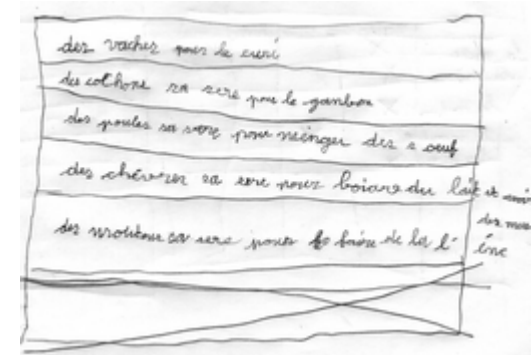 des vaches pour le curi
des cochons sa sere pour le ganbon
des poules sa sere pour meinger des s oeuf
des chèvres sa sere pour boiare du lait et
des
des moutons sa sere pour fo faire de la l' éne